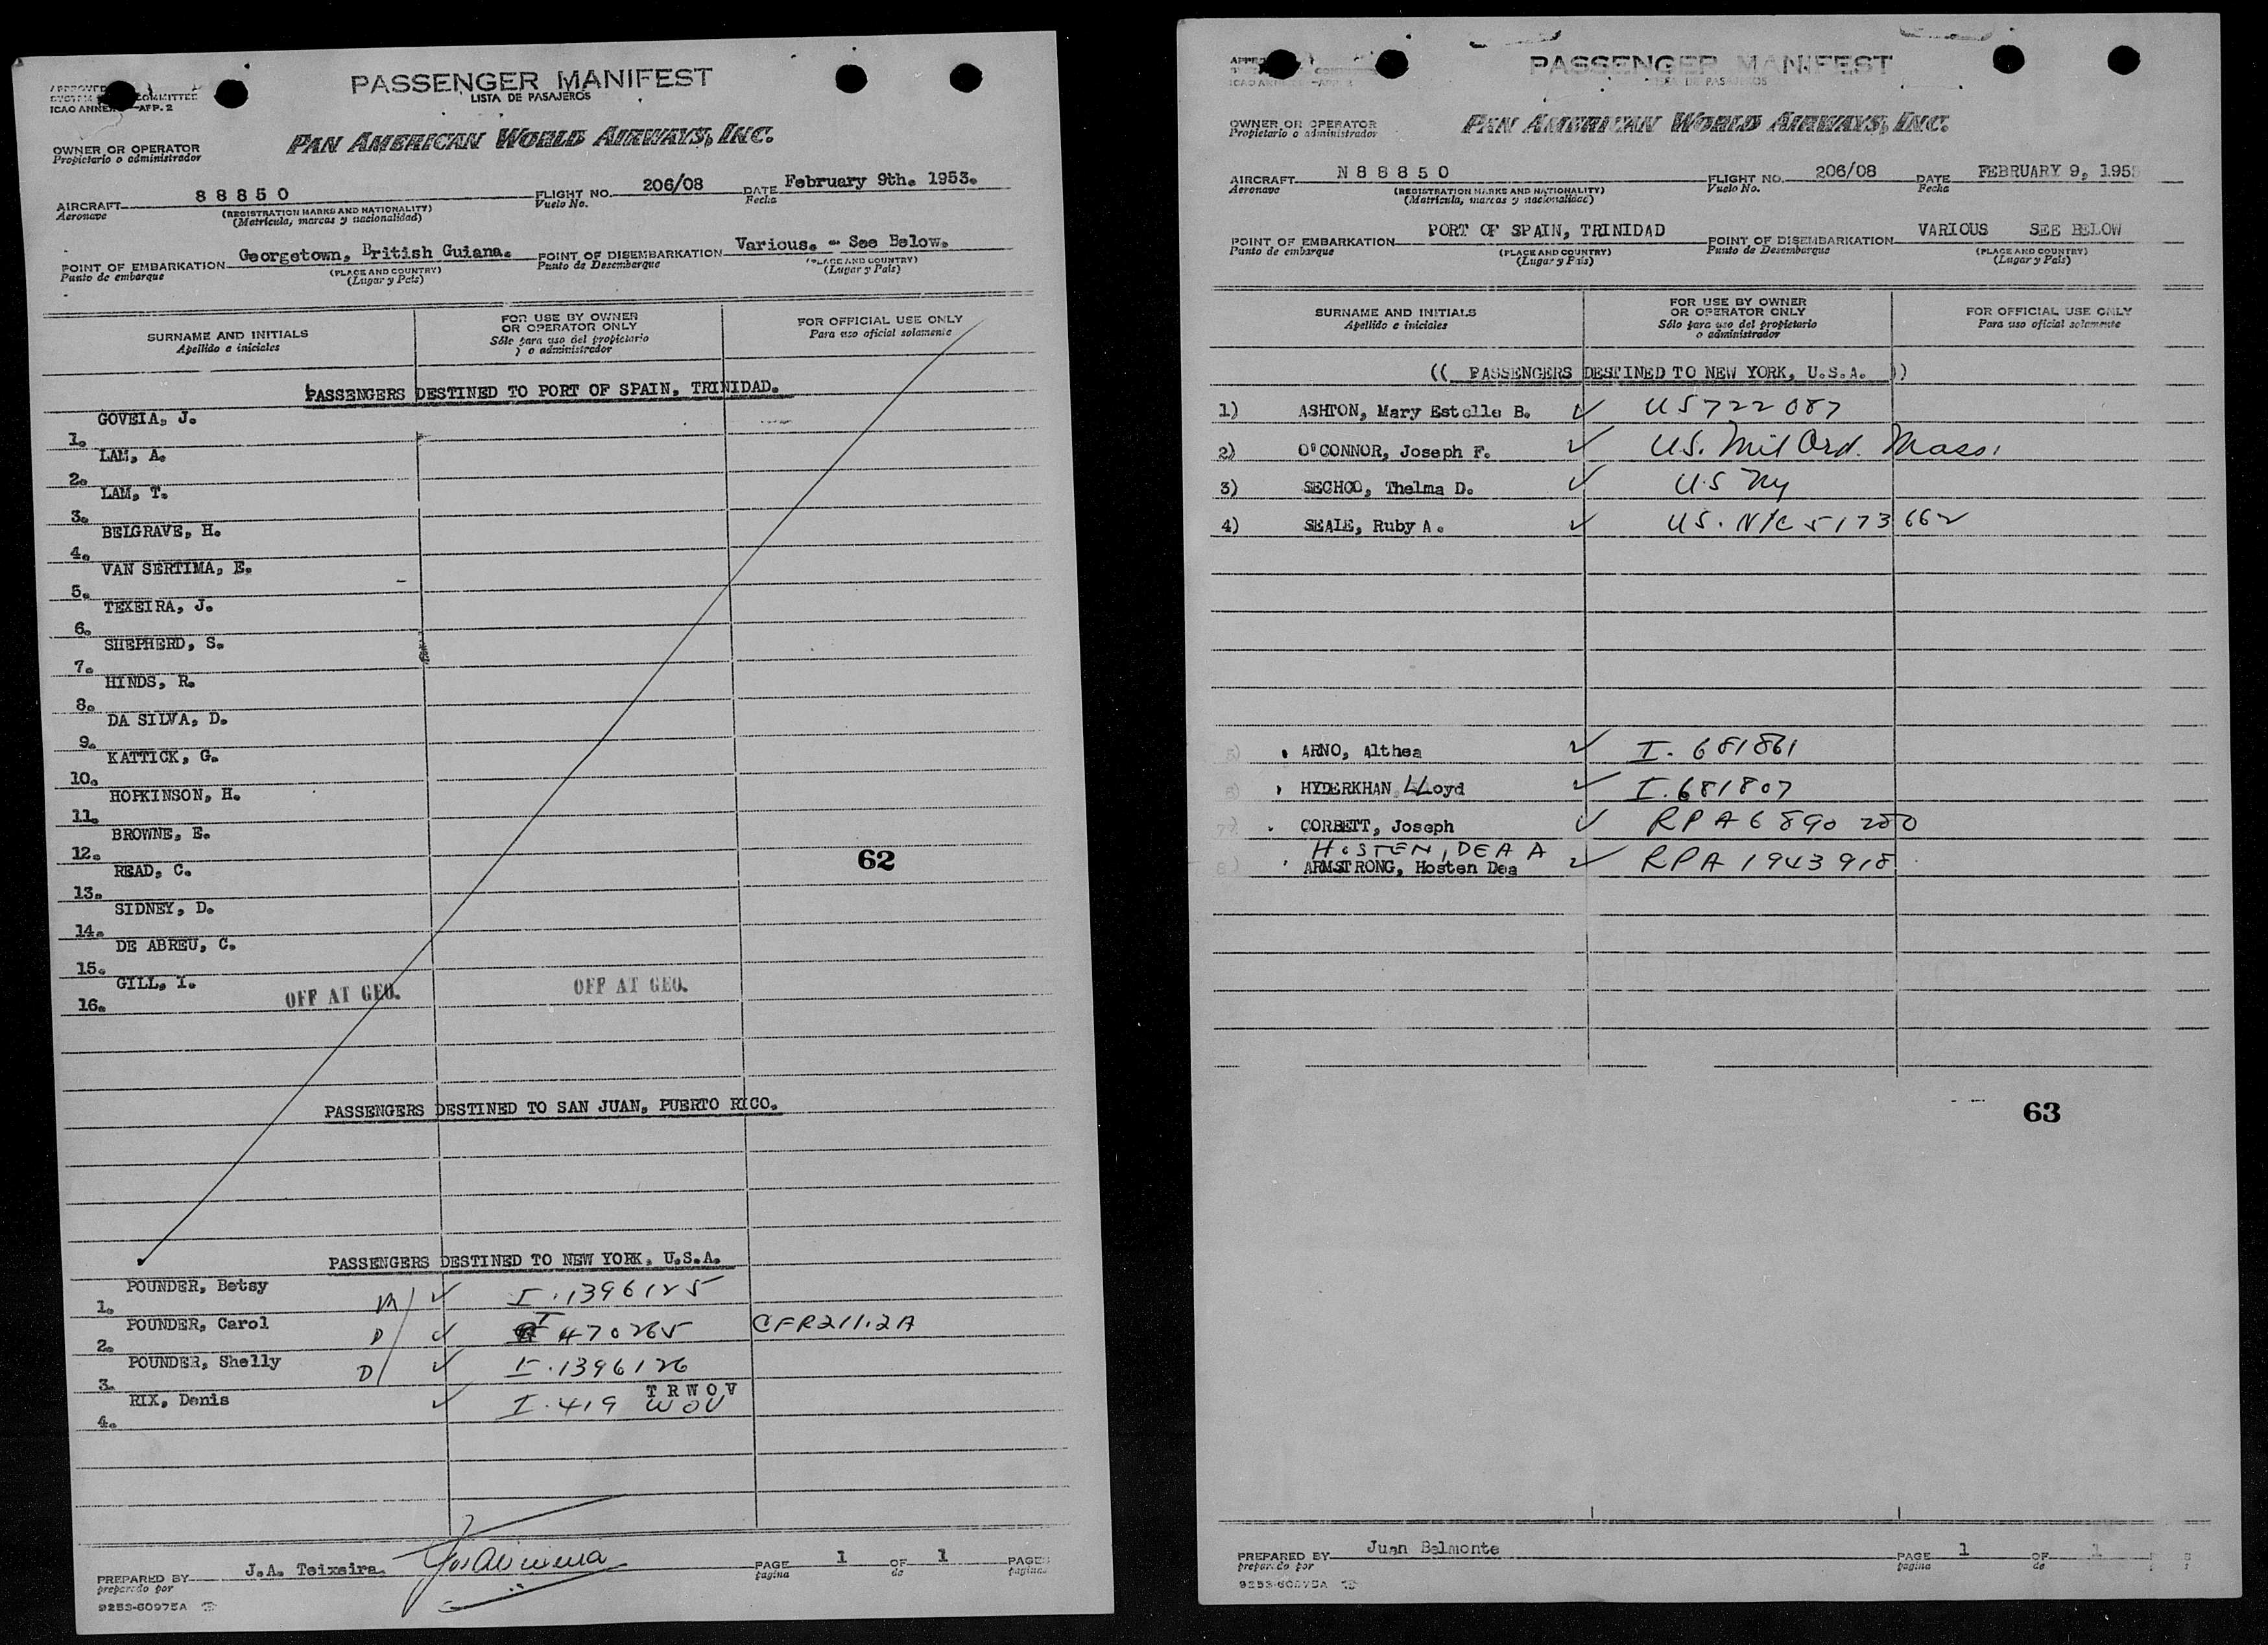 PASSENGER MANIFEST
LISTA DE PASAJEROS
APPROVED
COMMITTEE
ICAO ANNEX —APP. 2
PAN AMERICAN WORLD AIRWAYS, INC.
OWNER OR OPERATOR
Propietario o administrador
AIRCRAFT 88850 FLIGHT NO. 206/08 DATE February 9th. 1953.
Aeronave (REGISTRATION MARKS AND NATIONALITY) Vuelo No. Fecha
(Matrícula, marcas y nacionalidad)
POINT OF EMBARKATION Georgetown, British Guiana. POINT OF DISEMBARKATION Various. - See Below.
Punto de embarque (PLACE AND COUNTRY) Punto de Desembarque (PLACE AND COUNTRY)
(Lugar y País) (Lugar y País)
SURNAME AND INITIALS FOR USE BY OWNER FOR OFFICIAL USE ONLY
Apellido e iniciales OR OPERATOR ONLY Para uso oficial solamente
Sólo para uso del propietario
o administrador
PASSENGERS DESTINED TO PORT OF SPAIN, TRINIDAD.
1. GOVEIA, J.
2. LAM, A.
3. LAM, T.
4. BELGRAVE, H.
5. VAN SERTIMA, E.
6. TEXEIRA, J.
7. SHEPHERD, S.
8. HINDS, R.
9. DA SILVA, D.
10. KATTICK, G.
11. HOPKINSON, H.
12. BROWNE, E.
62
13. READ, C.
14. SIDNEY, D.
15. DE ABREU, C.
16. GILL, I. OFF AT GEO. OFF AT GEO.
PASSENGERS DESTINED TO SAN JUAN, PUERTO RICO.
PASSENGERS DESTINED TO NEW YORK, U.S.A.
1. POUNDER, Betsy M ✓ I.1396125
2. POUNDER, Carol D ✓ I 470265 CFR211.2A
3. POUNDER, Shelly D ✓ I.1396126
4. RIX, Denis ✓ I.419 TRWOV
WOV
PREPARED BY J.A. Teixeira. PAGE 1 OF 1 PAGES
preparado por pagina de paginas
9253-60975A
PASSENGER MANIFEST
LISTA DE PASAJEROS
PAN AMERICAN WORLD AIRWAYS, INC.
OWNER OR OPERATOR
Propietario o administrador
AIRCRAFT N88850 FLIGHT NO. 206/08 DATE FEBRUARY 9, 195
Aeronave (REGISTRATION MARKS AND NATIONALITY) Vuelo No. Fecha
(Matrícula, marcas y nacionalidad)
POINT OF EMBARKATION PORT OF SPAIN, TRINIDAD POINT OF DISEMBARKATION VARIOUS SEE BELOW
Punto de embarque (PLACE AND COUNTRY) Punto de Desembarque (PLACE AND COUNTRY)
(Lugar y País) (Lugar y País)
SURNAME AND INITIALS FOR USE BY OWNER FOR OFFICIAL USE ONLY
Apellido e iniciales OR OPERATOR ONLY Para uso oficial solamente
Sólo para uso del propietario
o administrador
(( PASSENGERS DESTINED TO NEW YORK, U.S.A. ))
1) ASHTON, Mary Estelle B. ✓ US722087
2) O'CONNOR, Joseph F. ✓ US. Mil Ord. Mass.
3) SECHOO, Thelma D. ✓ U.S NY
4) SEALE, Ruby A. ✓ US. N/C 5173662
5) ARNO, Althea ✓ I. 681861
6) HYDERKHAN, LLoyd ✓ I.681807
7) CORBETT, Joseph ✓ RPA6890280
HOSTEN, DEA A
8) ARMSTRONG, Hosten Dea ✓ RPA 1943918
63
PREPARED BY Juan Belmonte PAGE 1 OF 1
preparado por pagina de
9253-60975A